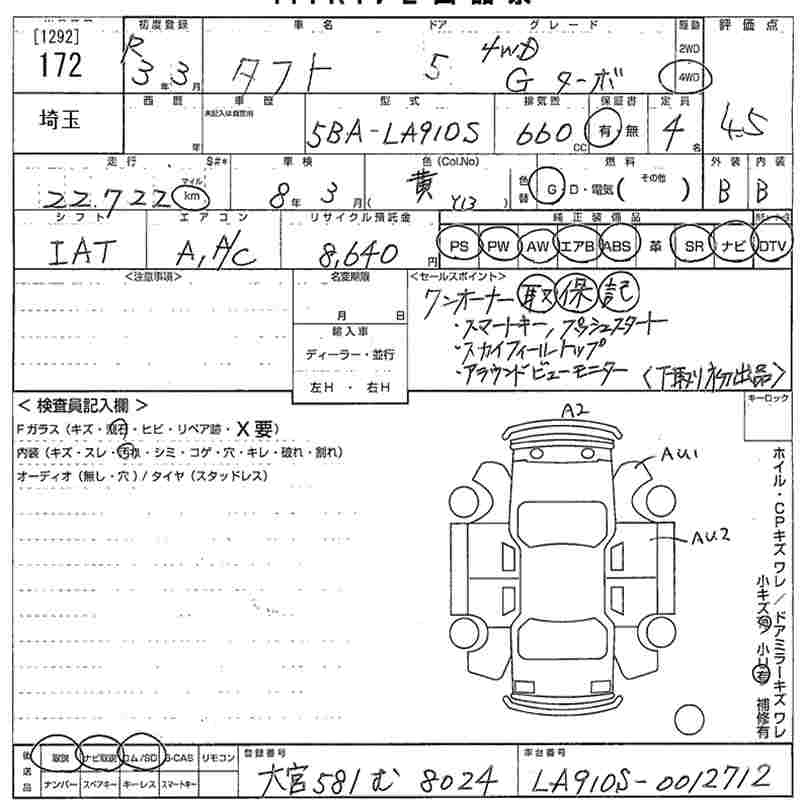 [1292]
172
埼玉
初度登録
R3年3月
車名
タフト
ドア
5
グレード
4WD
G ターボ
駆動
2WD
4WD
評価点
4.5
西暦
年
車歴
未記入は自家用
型式
5BA-LA910S
排気数
660
CC
保証書
有・無
定員
4
名
走行
S#*
22.722
マイル
km
車検
8年3月
色(Col.No)
(黄 Y13)
色替
燃料
G・D・電気( その他 )
外装
B
内装
B
シフト
IAT
エアコン
A,A/C
リサイクル預託金
8,640円
純正装備品
PS PW AW エアB ABS 革 SR ナビ DTV
<注意事項>
名変期限
月 日
輸入車
ディーラー・並行
左H・右H
<セールスポイント>
ワンオーナー 取 保 記
・スマートキー, プッシュスタート
・スカイフィールトップ
・アラウンドビューモニター 〈下取り初出品〉
< 検査員記入欄 >
Fガラス(キズ・飛石・ヒビ・リペア跡・X要)
内装(キズ・スレ・汚れ・シミ・コゲ・穴・キレ・破れ・割れ)
オーディオ(無し・穴)/タイヤ(スタッドレス)
キーロック
A2
AU1
AU2
ホイル・CPキズ ワレ/ドアミラーキズ ワレ
小キズ有 小U有 補修有
後送品
取説 ナビ取説 ロム/SD B-CAS リモコン
ナンバー スペアキー キーレス スマートキー
登録番号
大宮581む8024
車台番号
LA910S-0012712